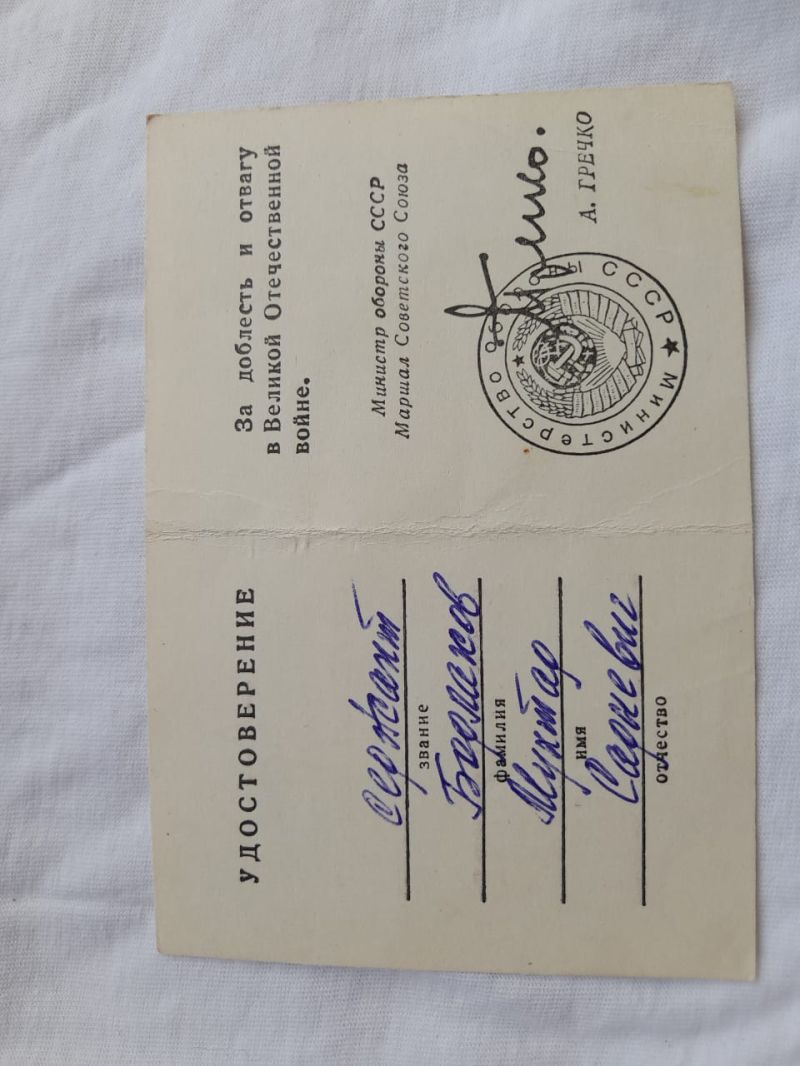 УДОСТОВЕРЕНИЕ
Сержант
звание
фамилия
Мухтар
имя
отчество
За доблесть и отвагу
в Великой Отечественной
войне.
Министр обороны СССР
Маршал Советского Союза
А. ГРЕЧКО
МИНИСТЕРСТВО ОБОРОНЫ СССР